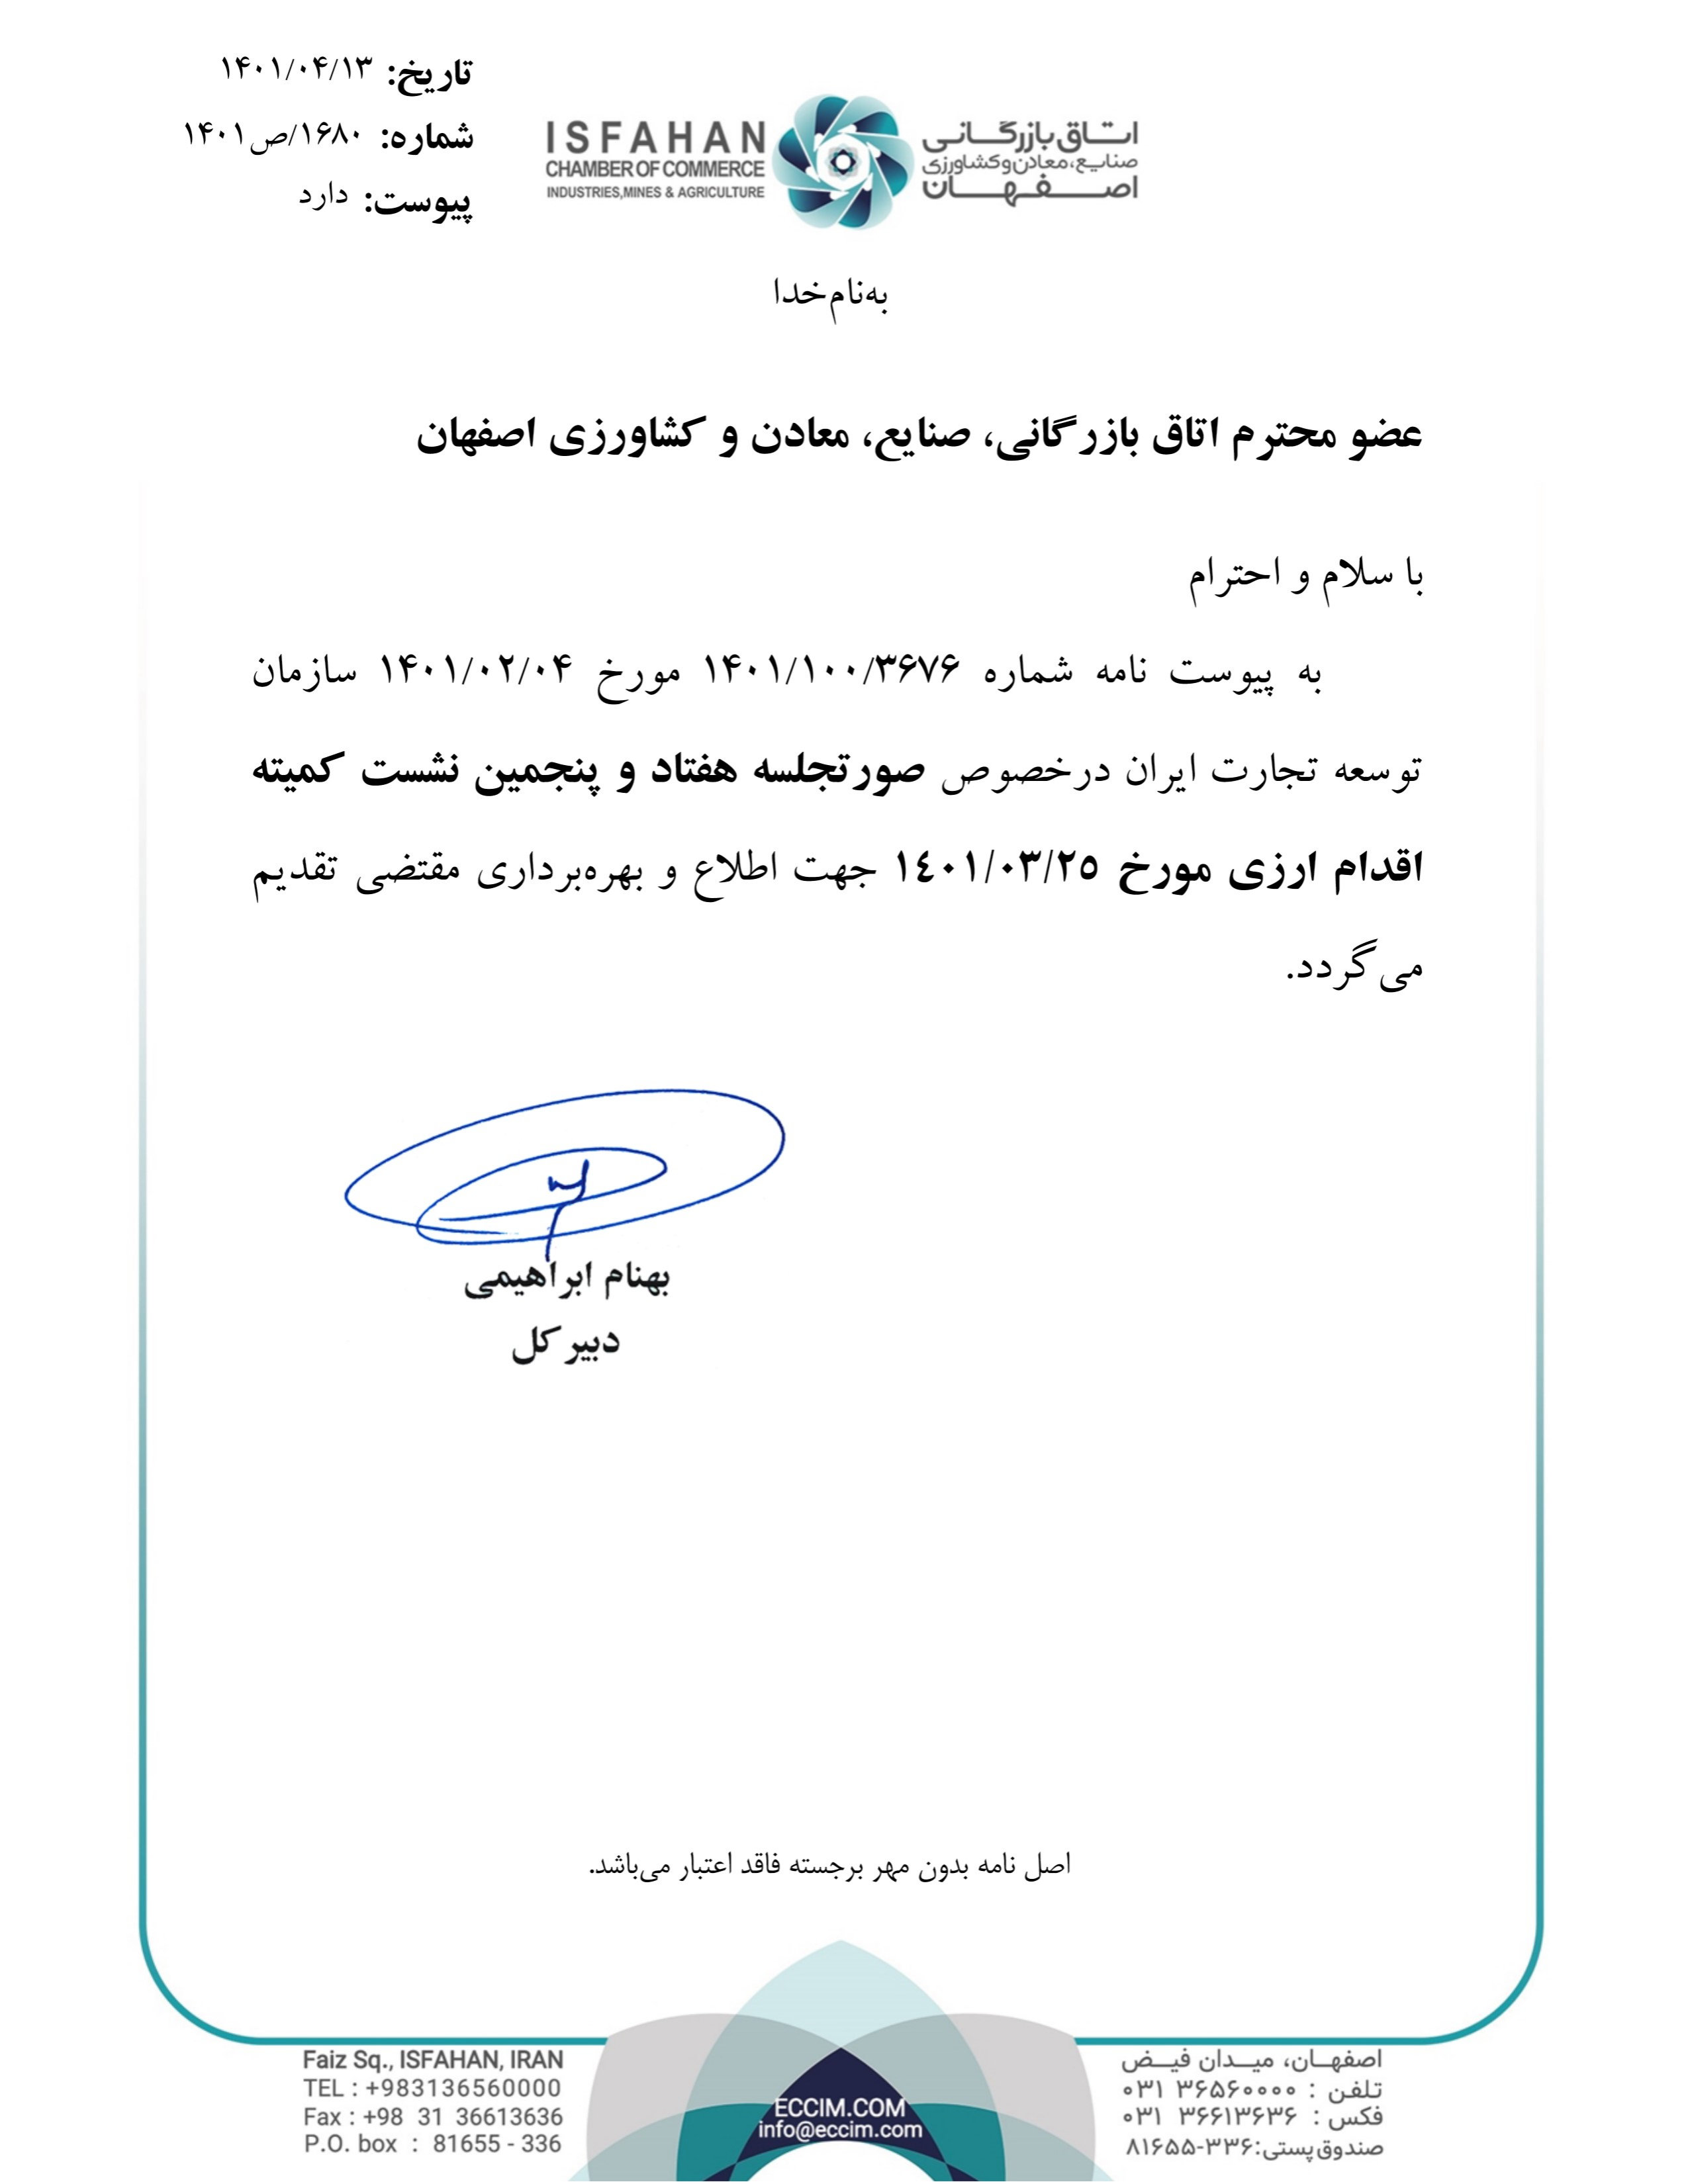 تاریخ: ۱۴۰۱/۰۴/۱۳
شماره: ۱۶۸۰/ص۱۴۰۱
پیوست: دارد
ISFAHAN
CHAMBER OF COMMERCE
INDUSTRIES,MINES & AGRICULTURE
اتاق بازرگانی
صنایع، معادن و کشاورزی
اصفهان
به‌نام‌خدا
عضو محترم اتاق بازرگانی، صنایع، معادن و کشاورزی اصفهان
با سلام و احترام
به پیوست نامه شماره ۱۴۰۱/۱۰۰/۳۶۷۶ مورخ ۱۴۰۱/۰۲/۰۴ سازمان
توسعه تجارت ایران درخصوص صورتجلسه هفتاد و پنجمین نشست کمیته
اقدام ارزی مورخ ١٤٠١/٠٣/٢٥ جهت اطلاع و بهره‌برداری مقتضی تقدیم
می‌گردد.
بهنام ابراهیمی
دبیر کل
اصل نامه بدون مهر برجسته فاقد اعتبار می‌باشد.
Faiz Sq., ISFAHAN, IRAN
TEL : +983136560000
Fax : +98 31 36613636
P.O. box : 81655 - 336
ECCIM.COM
info@eccim.com
اصفهـــان، میـــدان فیـــض
تلفن : ۰۳۱ ۳۶۵۶۰۰۰۰
فکس : ۰۳۱ ۳۶۶۱۳۶۳۶
صندوق‌پستی:۳۳۶-۸۱۶۵۵